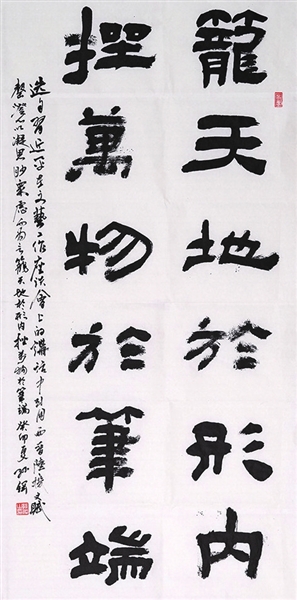 籠天地於形內
挫萬物於筆端
选自習近平在文藝工作座談會上的講話中引用西晉陸機文賦
罄澄心以凝思眇衆慮而为言籠天地於形内挫萬物於筆端癸卯夏